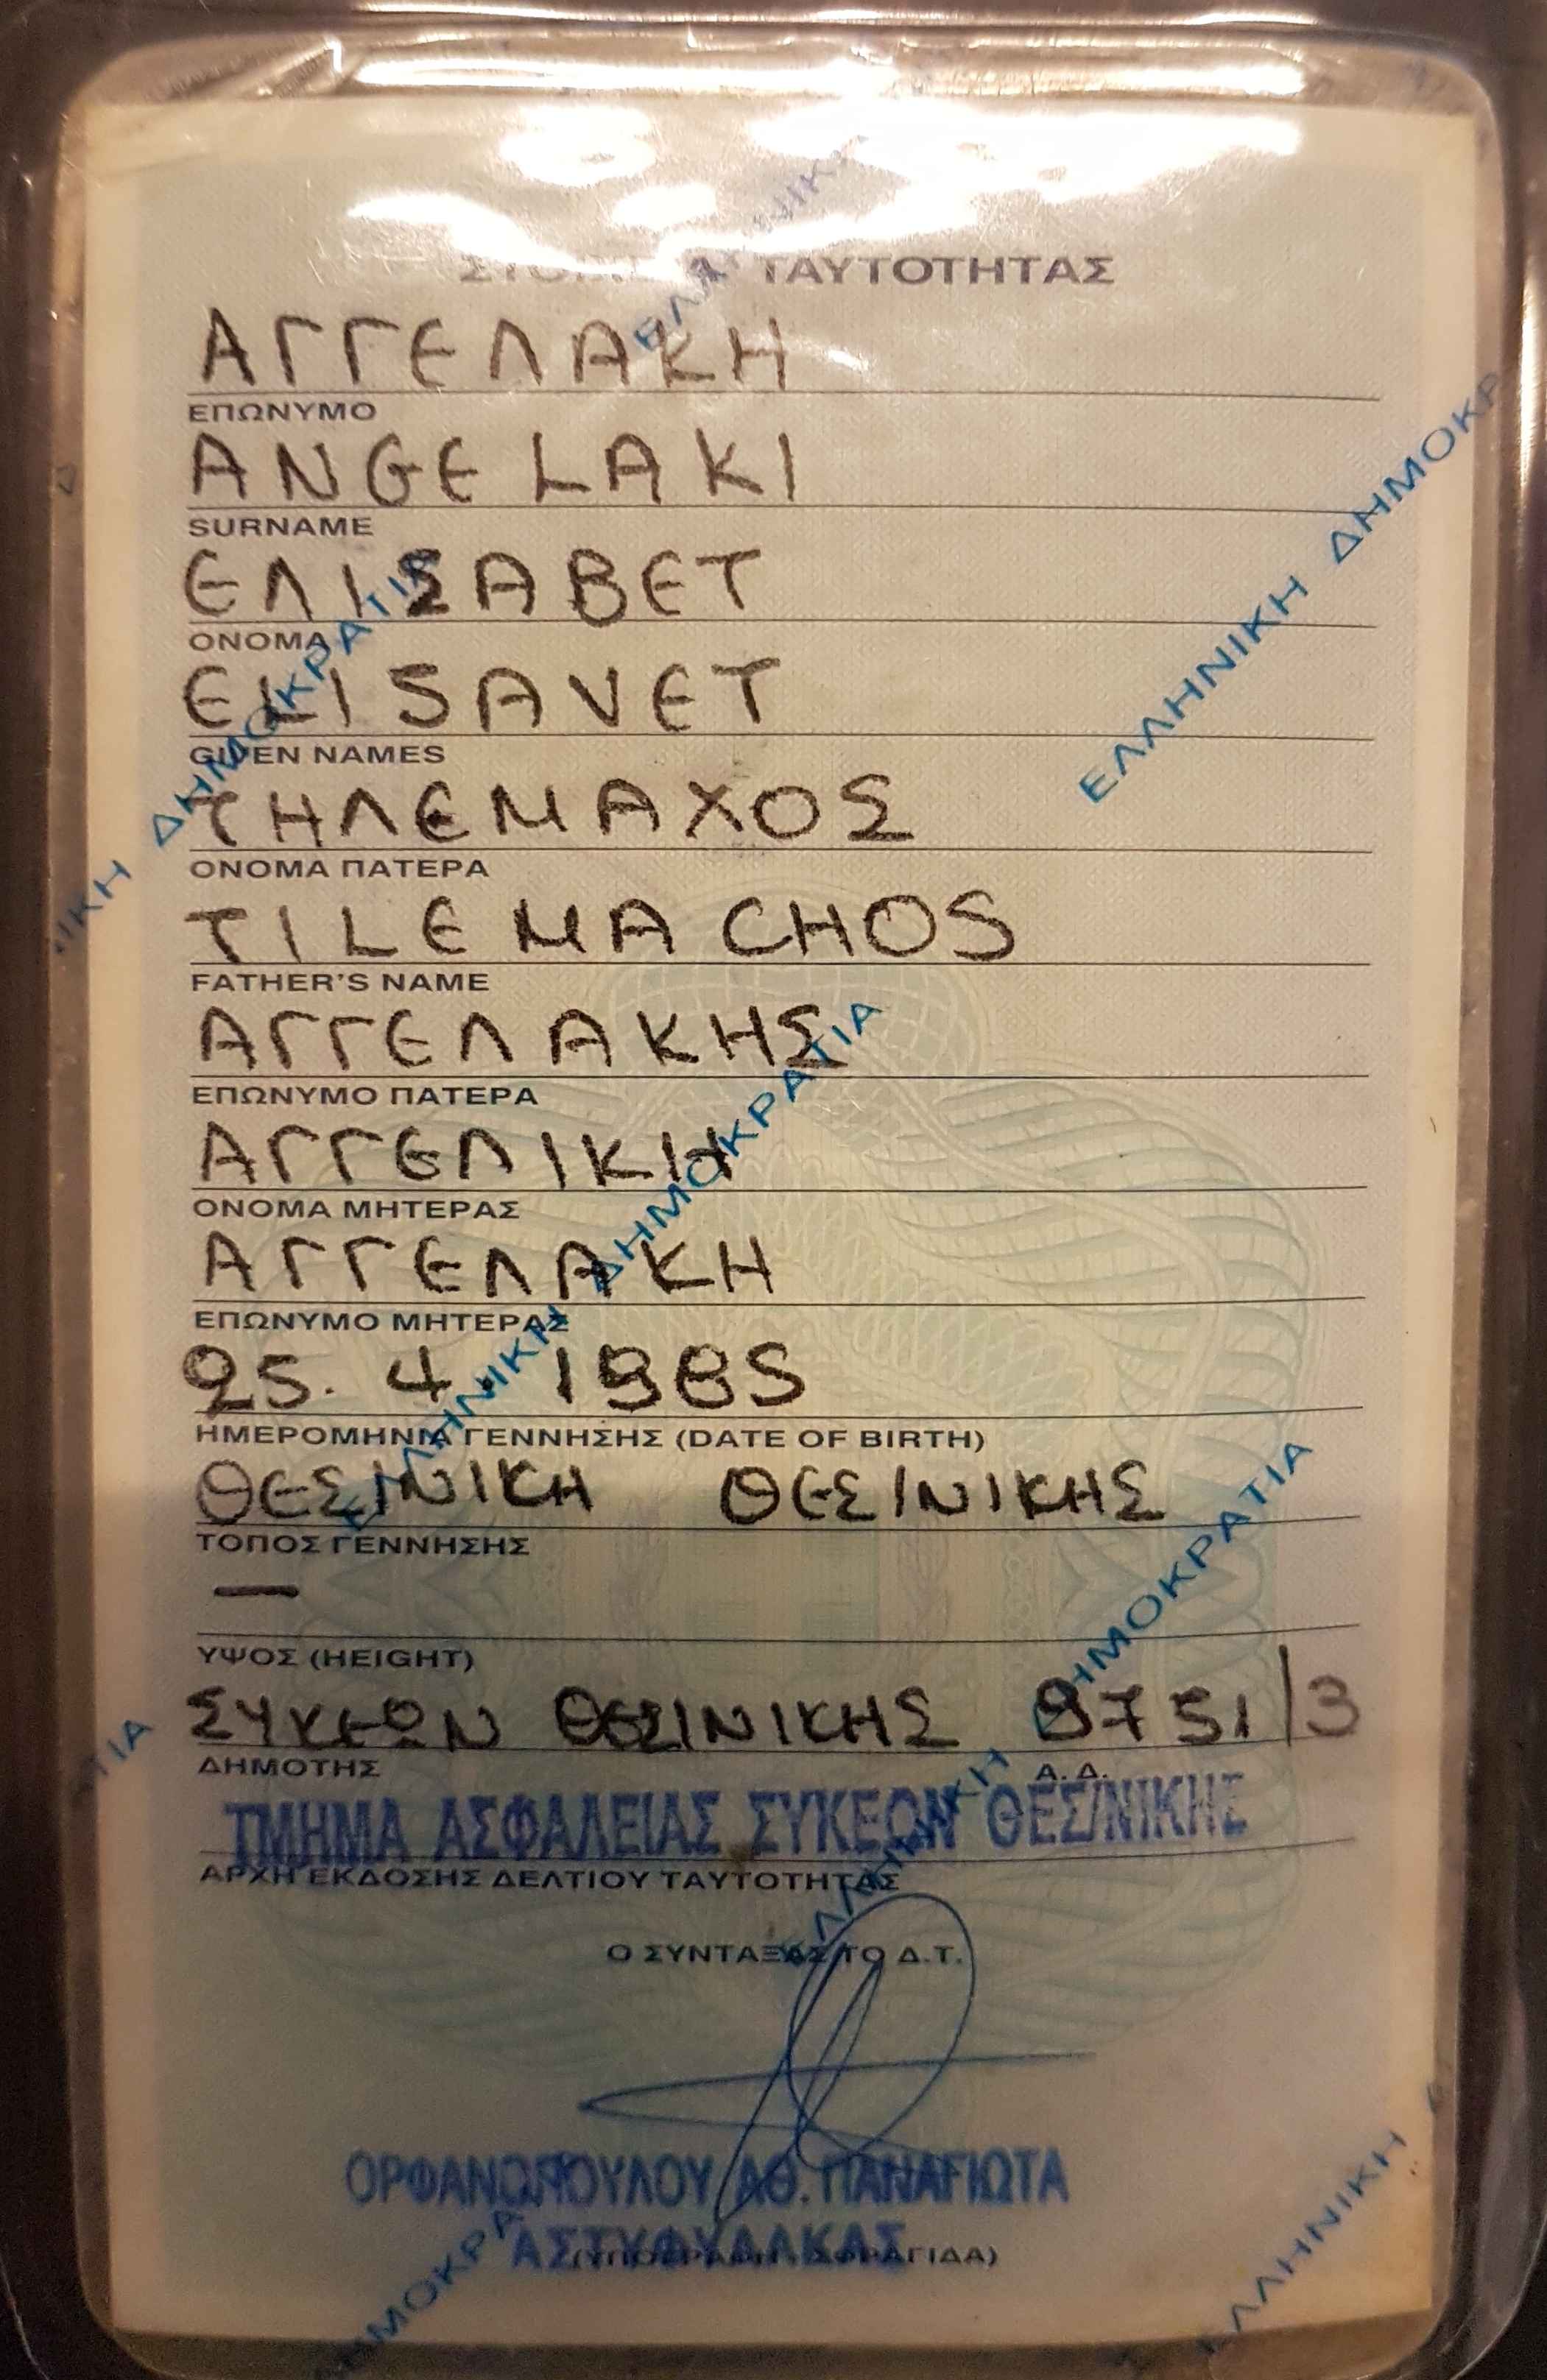 ΣΤΟΙΧΕΙΑ ΤΑΥΤΟΤΗΤΑΣ
ΑΓΓΕΛΑΚΗ
ΕΠΩΝΥΜΟ
ANGELAKI
SURNAME
ΕΛΙΣΑΒΕΤ
ΟΝΟΜΑ
ELISAVET
GIVEN NAMES
ΤΗΛΕΜΑΧΟΣ
ΟΝΟΜΑ ΠΑΤΕΡΑ
TILEMACHOS
FATHER'S NAME
ΑΓΓΕΛΑΚΗΣ
ΕΠΩΝΥΜΟ ΠΑΤΕΡΑ
ΑΓΓΕΛΙΚΗ
ΟΝΟΜΑ ΜΗΤΕΡΑΣ
ΑΓΓΕΛΑΚΗ
ΕΠΩΝΥΜΟ ΜΗΤΕΡΑΣ
25. 4. 1985
ΗΜΕΡΟΜΗΝΙΑ ΓΕΝΝΗΣΗΣ (DATE OF BIRTH)
ΘΕΣ/ΝΙΚΗ ΘΕΣ/ΝΙΚΗΣ
ΤΟΠΟΣ ΓΕΝΝΗΣΗΣ
—
ΥΨΟΣ (HEIGHT)
ΣΥΚΕΩΝ ΘΕΣ/ΝΙΚΗΣ 9751/3
ΔΗΜΟΤΗΣ Α.Δ.
ΤΜΗΜΑ ΑΣΦΑΛΕΙΑΣ ΣΥΚΕΩΝ ΘΕΣ/ΝΙΚΗΣ
ΑΡΧΗ ΕΚΔΟΣΗΣ ΔΕΛΤΙΟΥ ΤΑΥΤΟΤΗΤΑΣ
Ο ΣΥΝΤΑΞΑΣ ΤΟ Δ.Τ.
ΟΡΦΑΝΟΠΟΥΛΟΥ ΑΘ. ΠΑΝΑΓΙΩΤΑ
ΑΣΤΥΦΥΛΑΚΑΣ
(ΥΠΟΓΡΑΦΗ - ΣΦΡΑΓΙΔΑ)
ΕΛΛΗΝΙΚΗ ΔΗΜΟΚΡΑΤΙΑ